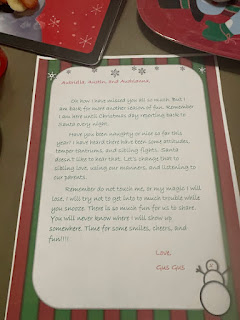 Aubrielle, Austin, and Audrianna,
Oh how I have missed you all so much. But I
am back for more another season of fun. Remember
I am here until Christmas day reporting back to
Santa every night.
Have you been naughty or nice so far this
year? I have heard there have been some attitudes,
temper tantrums, and sibling fights. Santa
doesn't like to hear that. Let's change that to
sibling love, using our manners, and listening to
our parents.
Remember do not touch me, or my magic I will
lose. I will try not to get into to much trouble while
you snooze. There is so much fun for us to share.
You will never know where I will show up
somewhere. Time for some smiles, cheers, and
fun!!!!
Love,
Gus Gus